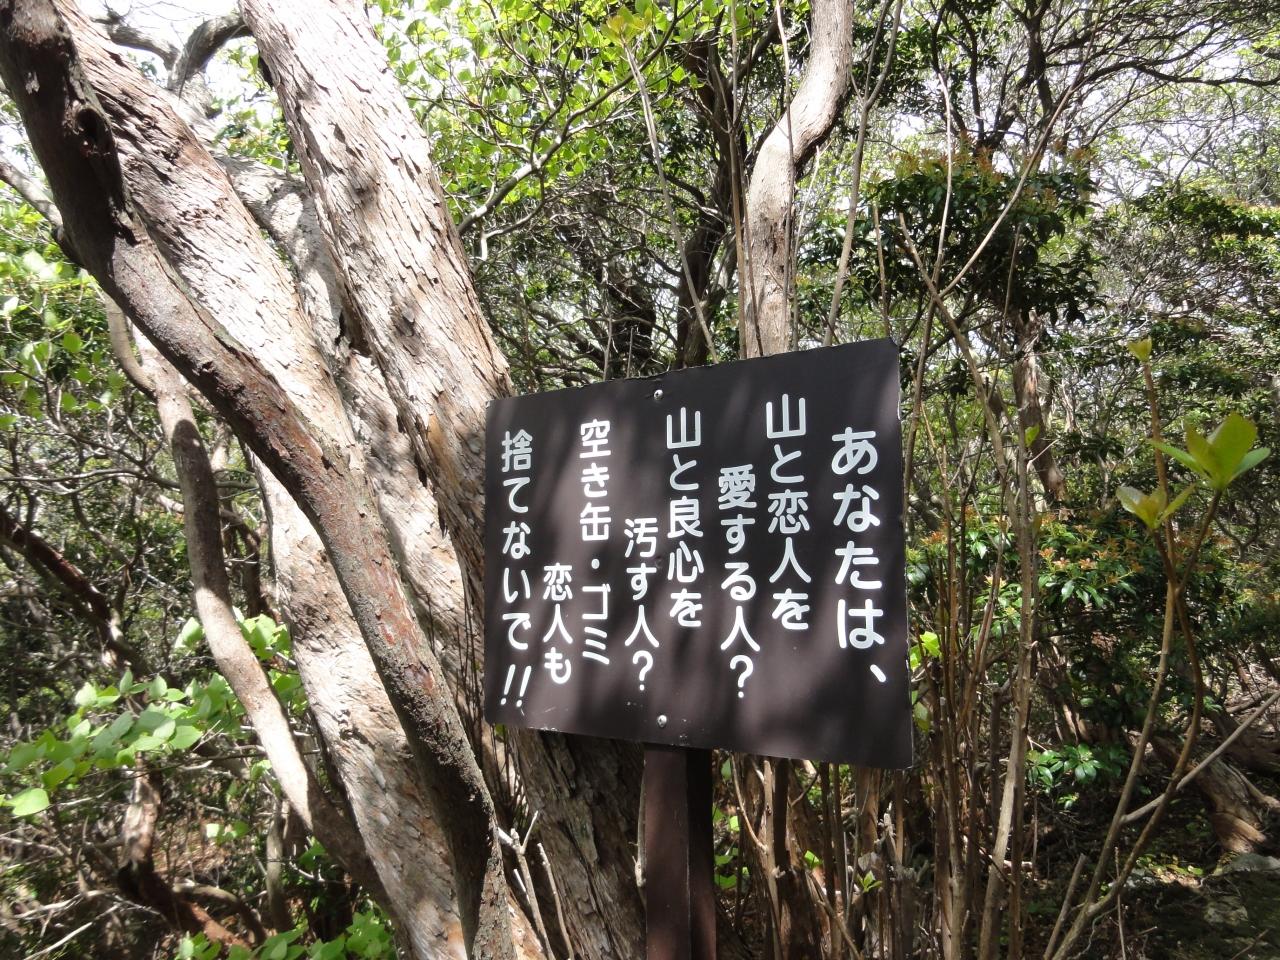 あなたは、
山と恋人を
愛する人?
山と良心を
汚す人?
空き缶・ゴミ
恋人も
捨てないで!!